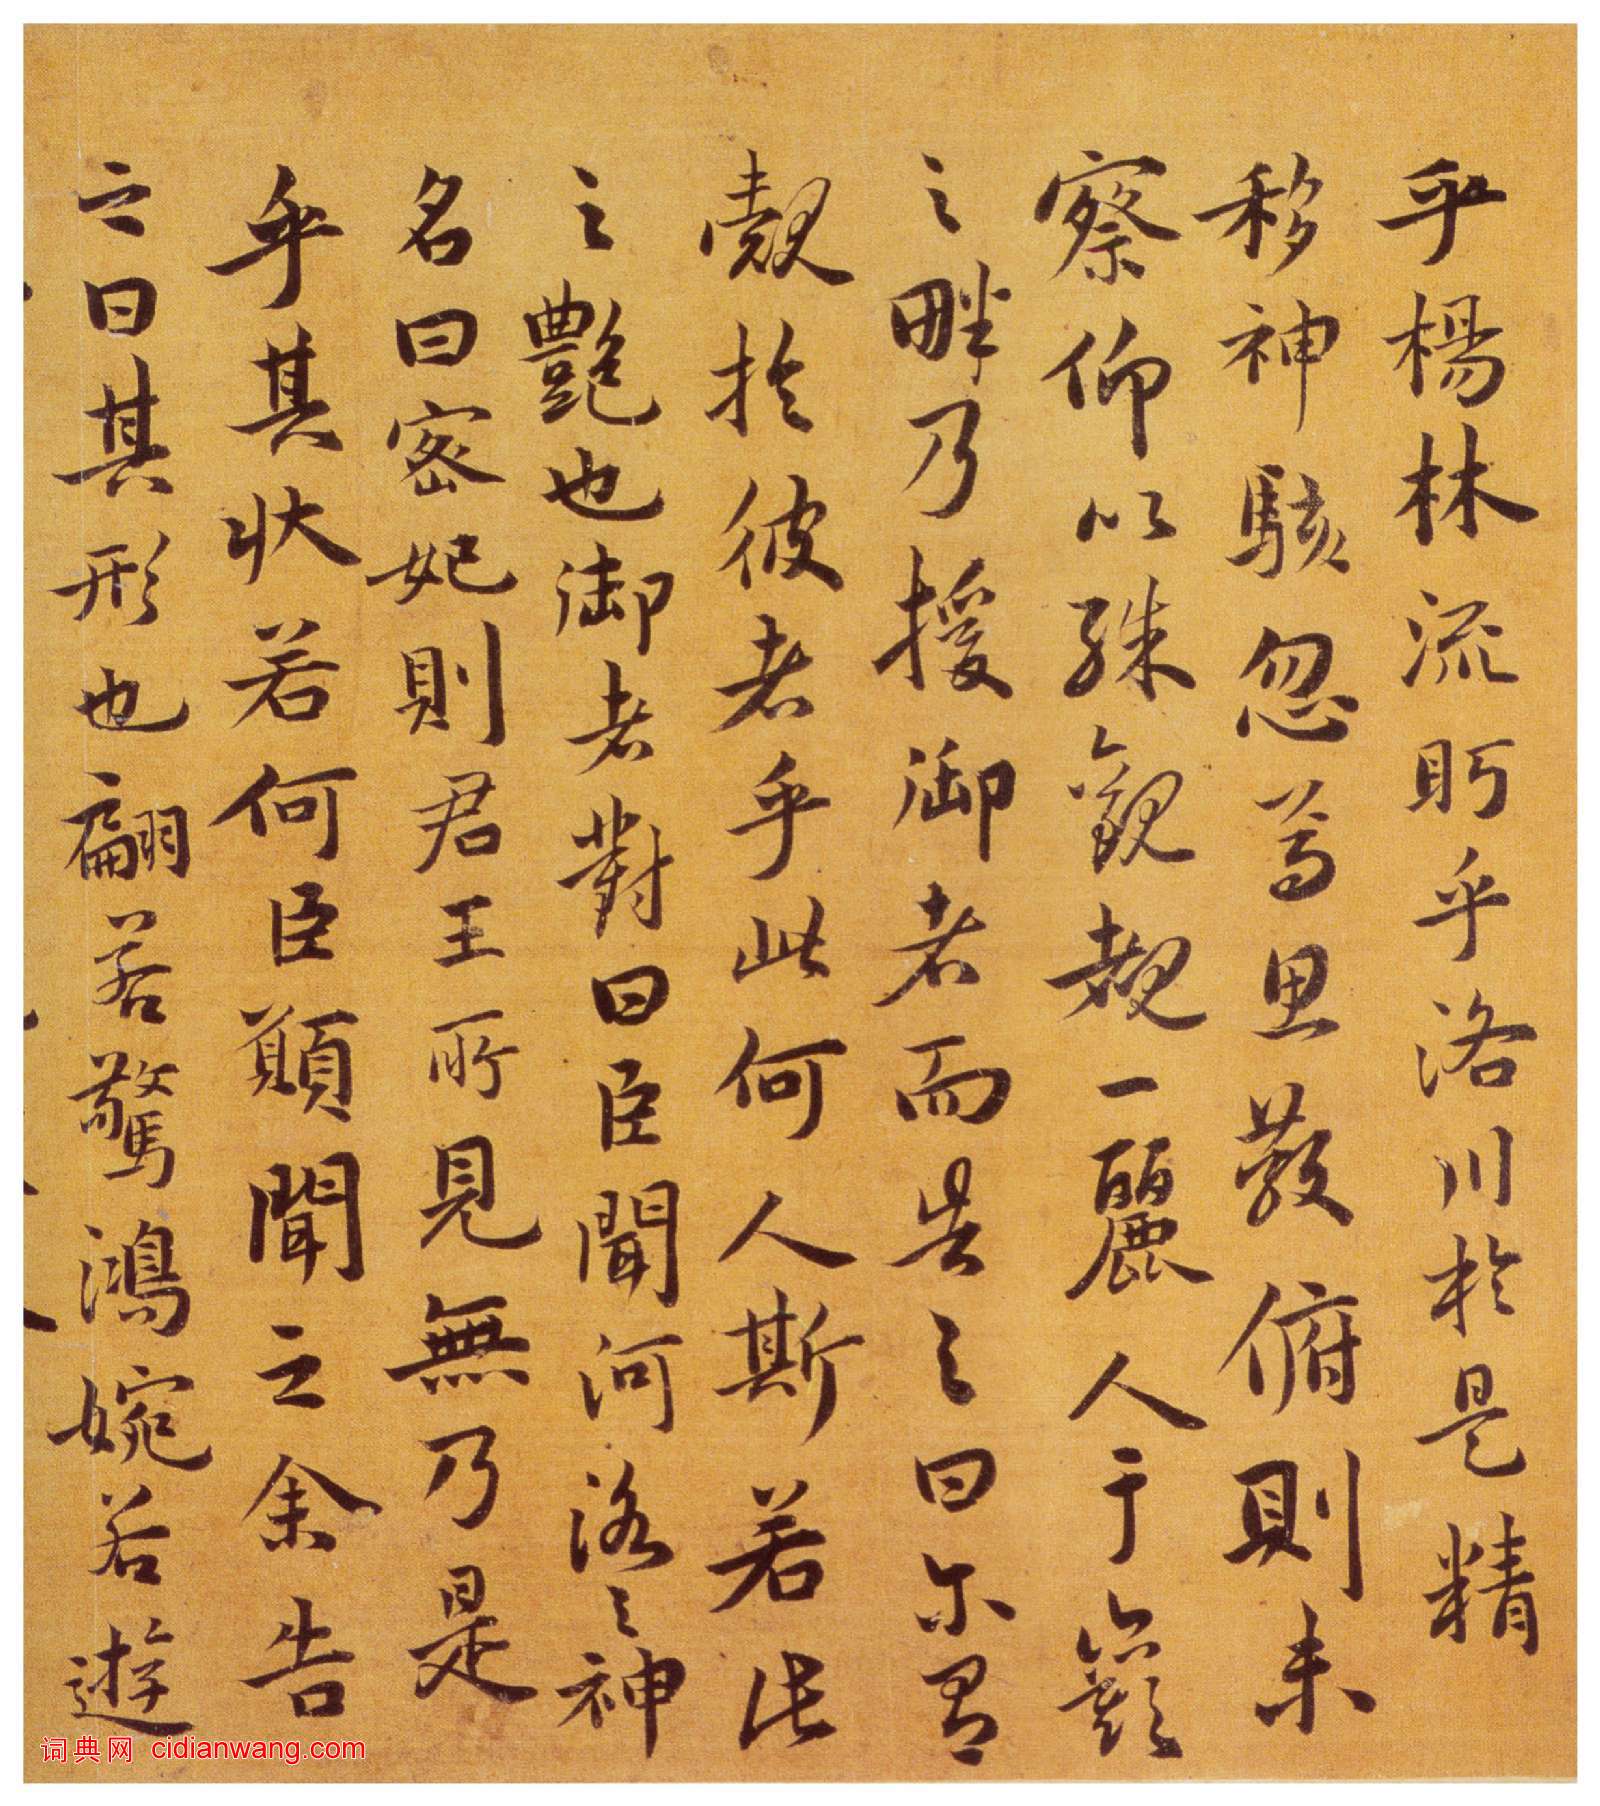 乎楊林流眄乎洛川於是精
移神駭忽焉思散俯則未
察仰以殊觀覩一麗人于巖
之畔乃援御者而告之曰尔有
覿於彼者乎此何人斯若此
之艷也御者對曰臣聞河洛之神
名曰宓妃則君王所見無乃是
乎其状若何臣願聞之余告
之曰其形也翩若驚鴻婉若遊
词典网 cidianwang.com